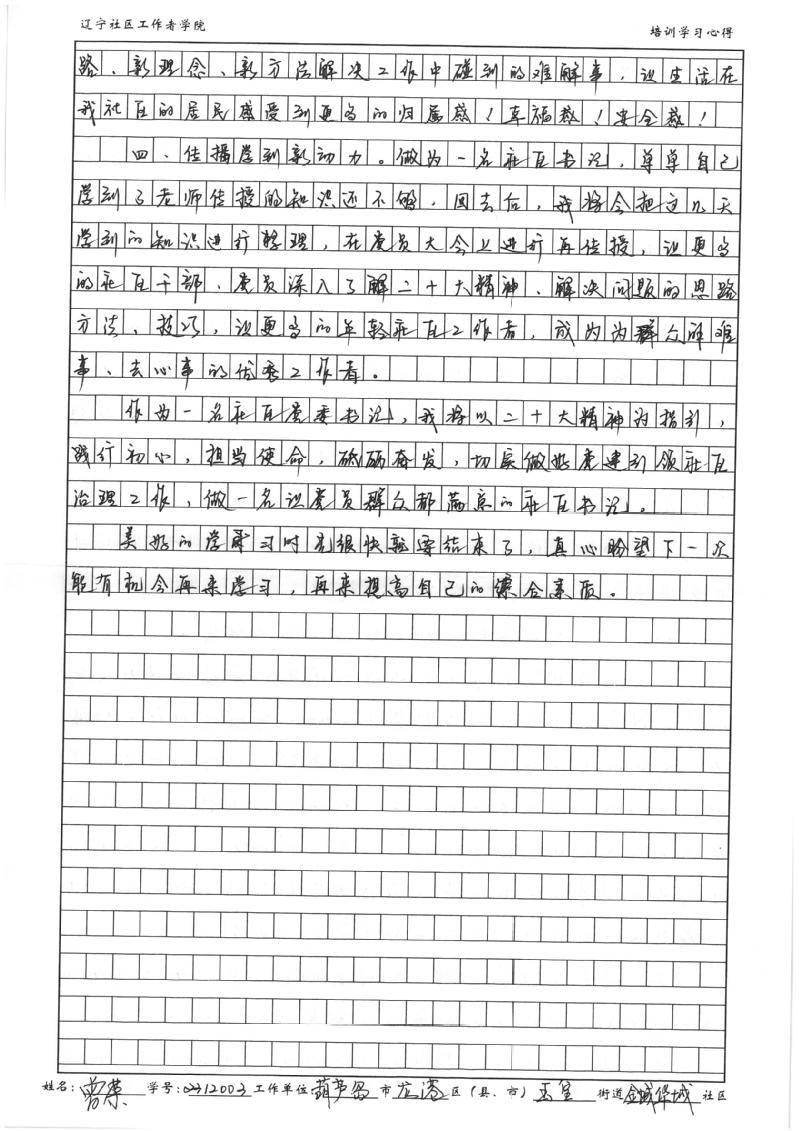 辽宁社区工作者学院
培训学习心得
路、新理念、新方法解决工作中碰到的难解事，让生活在
我社区的居民感受到更多的归属感！幸福感！安全感！
四、传播学到新动力。做为一名社区书记，单单自己
学到了老师传授的知识还不够，回去后，我将会把这几天
学到的知识进行整理，在党员大会上进行再传授，让更多
的社区干部、党员深入了解二十大精神、解决问题的思路
方法、技巧，让更多的年轻社区工作者，成为为群众解难
事、去心事的优秀工作者。
作为一名社区党委书记，我将以二十大精神为指引，
践行初心，担当使命，砥砺奋发，切实做好党建引领社区
治理工作，做一名让党员群众都满意的社区书记。
美好的学习时光很快就要结束了，真心盼望下一次
能有机会再来学习，再来提高自己的综合素质。
姓名： 学号： 工作单位：葫芦岛市龙港区（县、市）玉皇街道金域华城社区